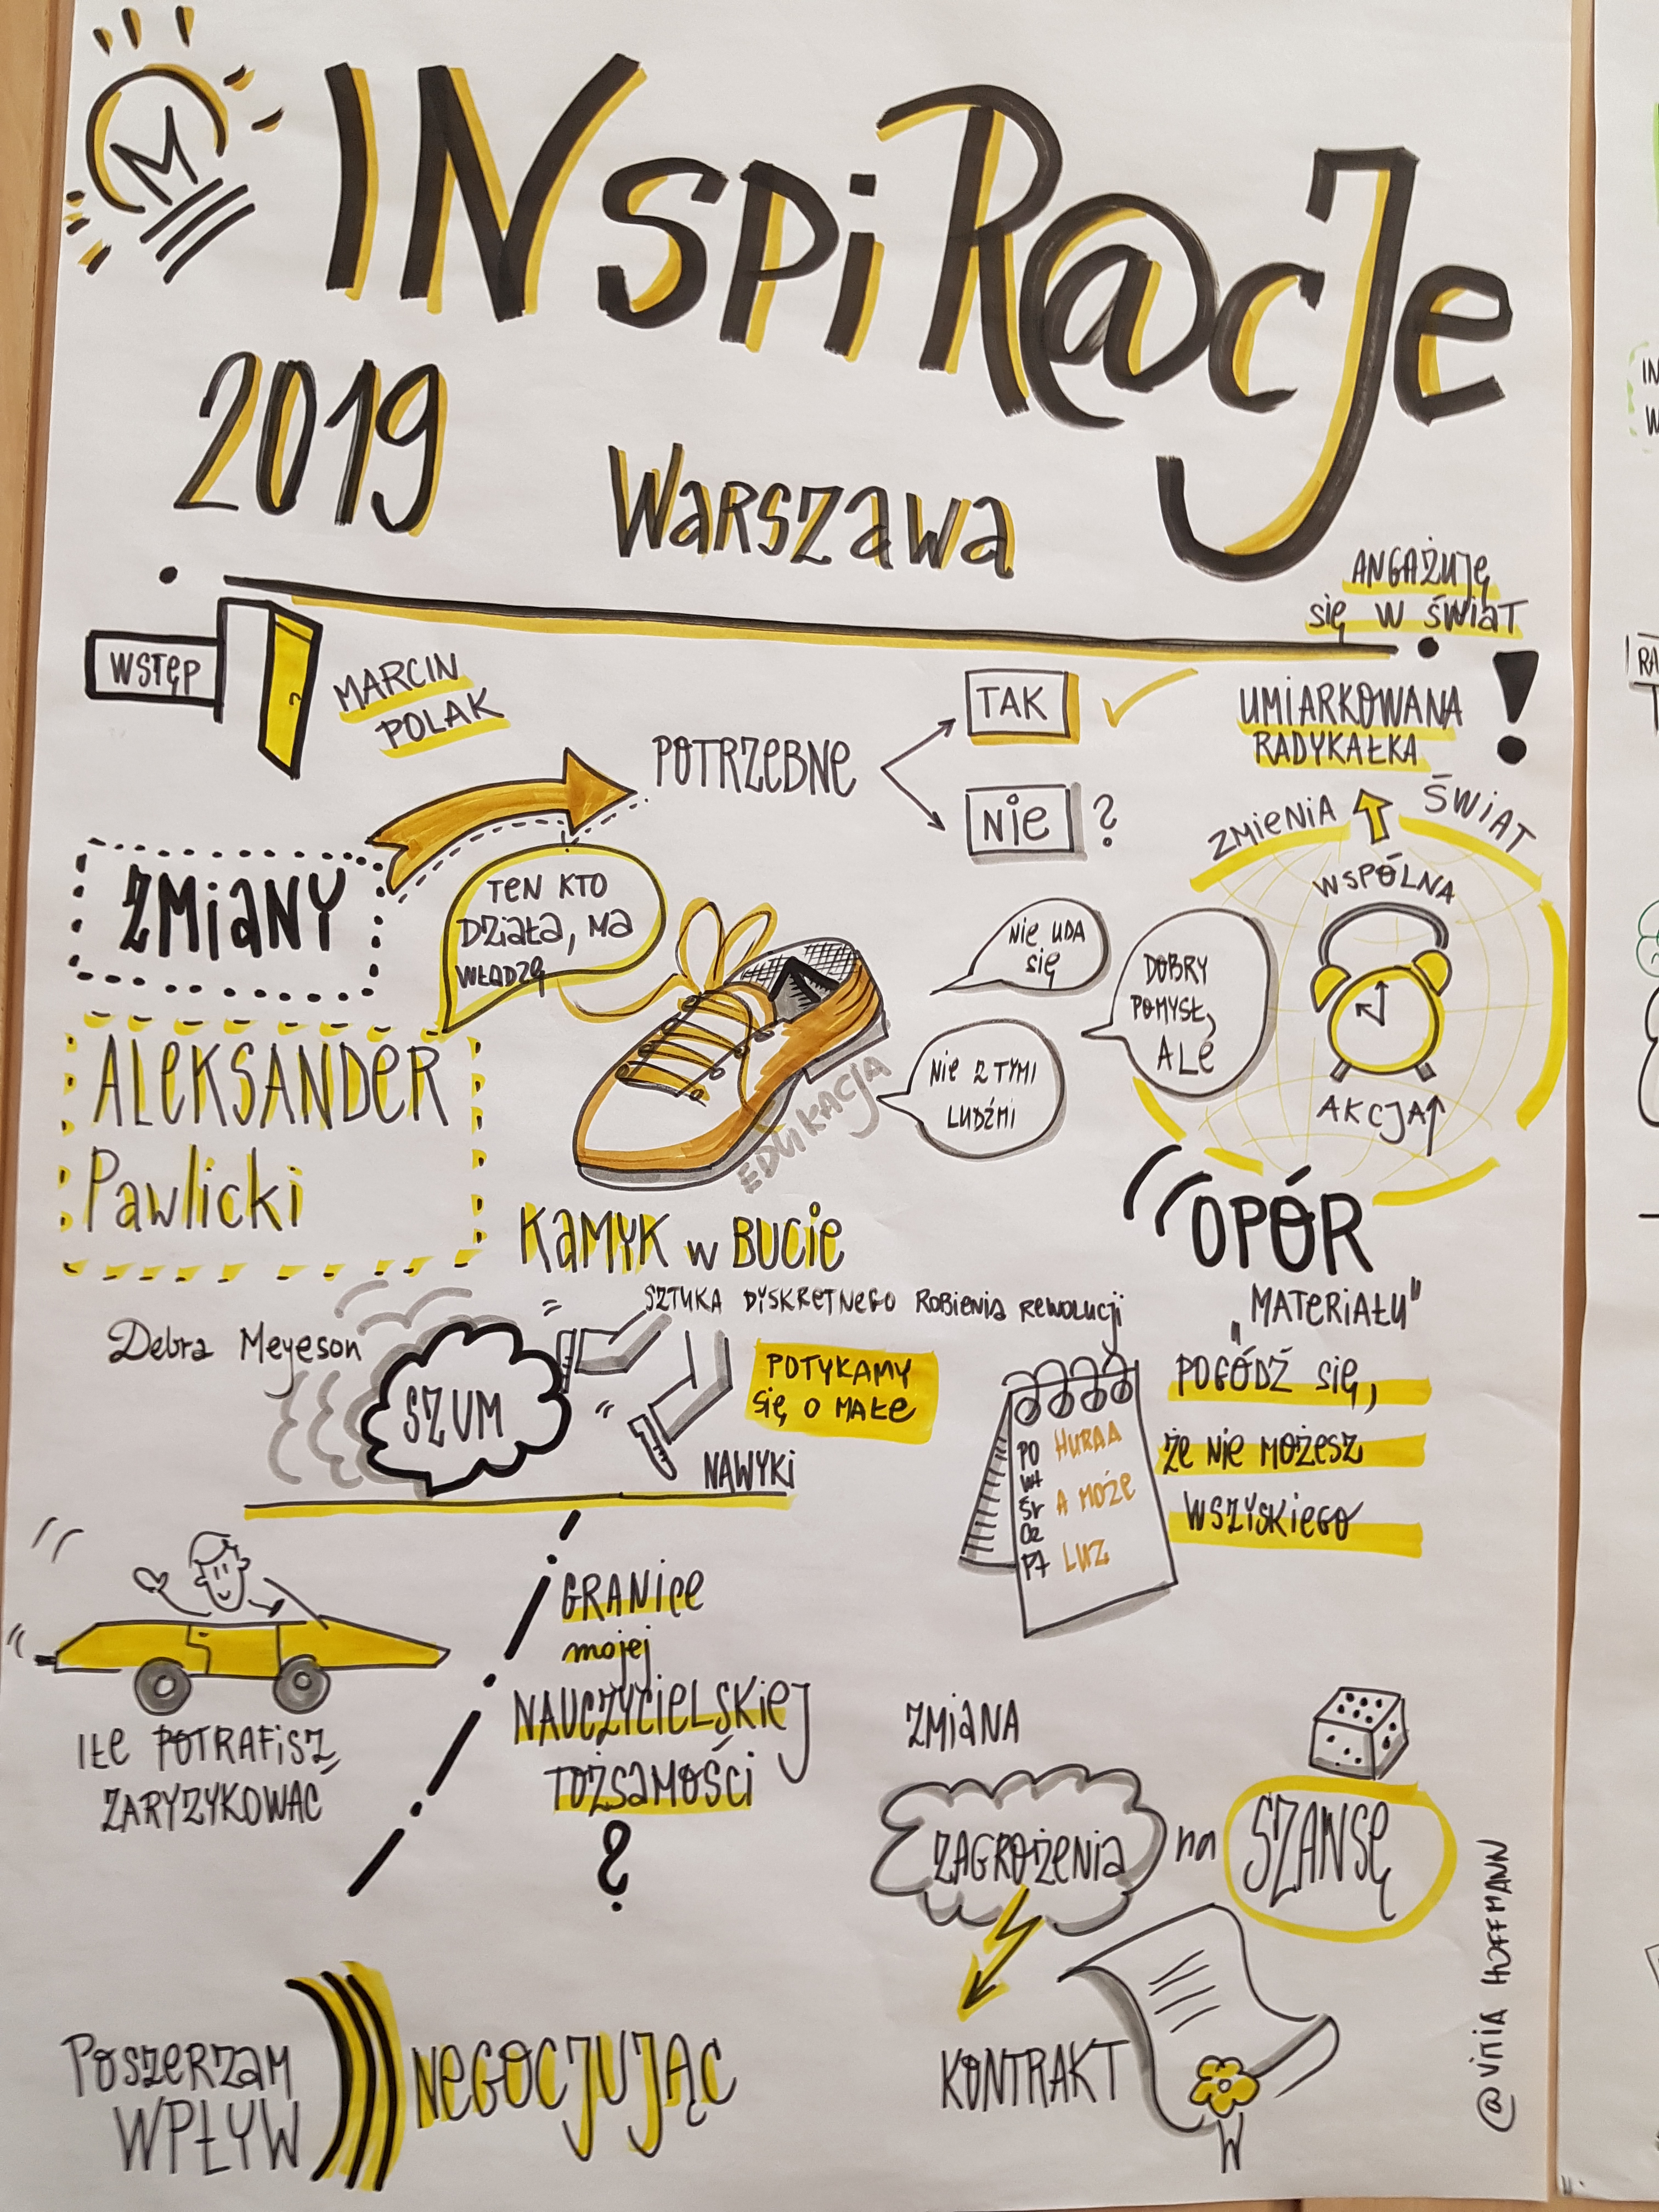 M
INspiR@cJe
2019
Warszawa
ANGAŻUJĘ
się w świat
WSTĘP
MARCIN
POLAK
POTRZEBNE
TAK
NIE ?
UMIARKOWANA
RADYKAŁKA
!
ZMIENIA ŚWIAT
WSPÓLNA
AKCJA
ZMIANY
TEN KTO
DZIAŁA, MA
WŁADZĘ
NIE UDA
SIĘ
DOBRY
POMYSŁ,
ALE
NIE Z TYMI
LUDŹMI
EDUKACJA
ALEKSANDER
Pawlicki
KAMYK w BUCIE
OPÓR
"MATERIAŁU"
SZTUKA DYSKRETNEGO ROBIENIA REWOLUCJI
Debra Meyeson
SZUM
POTYKAMY
SIĘ O MAŁE
NAWYKI
PO HURAA
WT
ŚR A MOŻE
CZ
PT LUZ
POGÓDŹ SIĘ,
ŻE NIE MOŻESZ
WSZYSKIEGO
IŁE POTRAFISZ
ZARYZYKOWAĆ
GRANICE
mojej
NAUCZYCIELSKIEJ
TOŻSAMOŚCI
?
ZMIANA
ZAGROŻENIA na SZANSĘ
KONTRAKT
POSZERZAM
WPŁYW
NEGOCJUJĄC
HOFFMANN